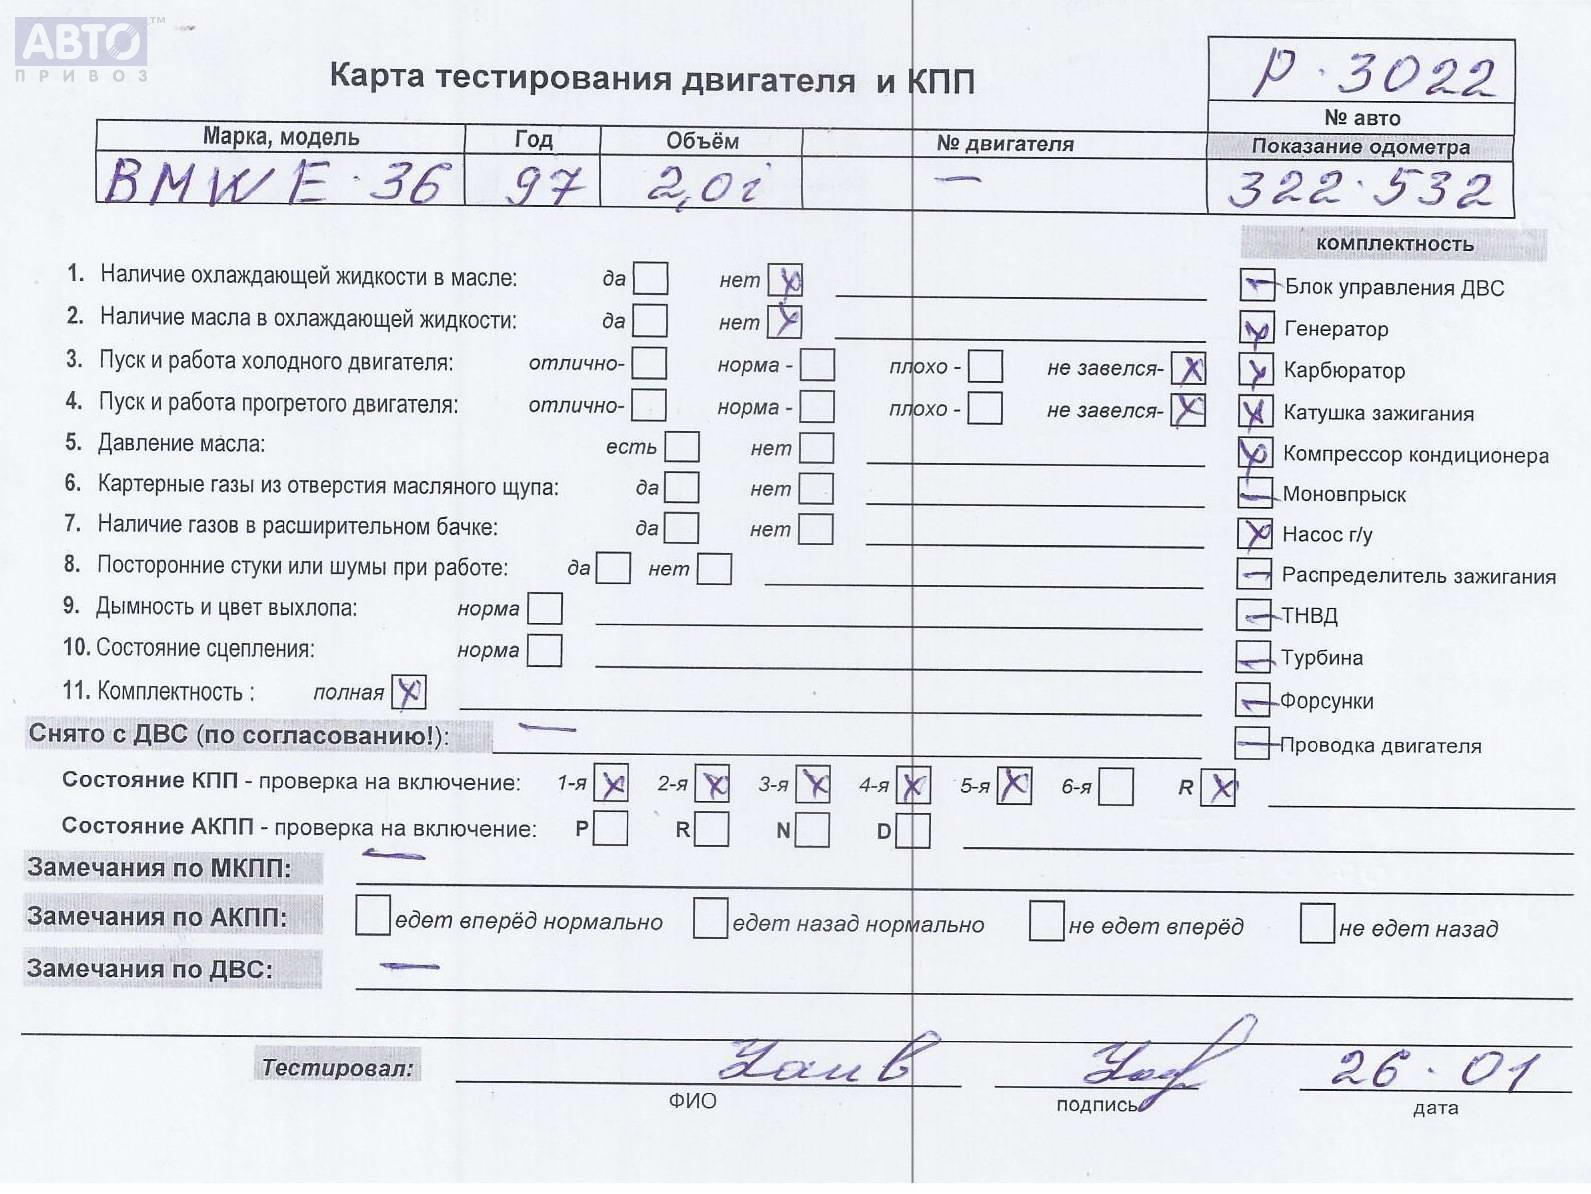 АВТО™
ПРИВОЗ
Карта тестирования двигателя и КПП
Р·3022
№ авто
Марка, модель Год Объём № двигателя Показание одометра
BMW E·36 97 2,0i — 322·532
комплектность
1. Наличие охлаждающей жидкости в масле: да нет x
2. Наличие масла в охлаждающей жидкости: да нет x
3. Пуск и работа холодного двигателя: отлично- норма - плохо - не завелся- x
4. Пуск и работа прогретого двигателя: отлично- норма - плохо - не завелся- x
5. Давление масла: есть нет
6. Картерные газы из отверстия масляного щупа: да нет
7. Наличие газов в расширительном бачке: да нет
8. Посторонние стуки или шумы при работе: да нет
9. Дымность и цвет выхлопа: норма
10. Состояние сцепления: норма
11. Комплектность : полная x
— Блок управления ДВС
x Генератор
x Карбюратор
x Катушка зажигания
x Компрессор кондиционера
— Моновпрыск
x Насос г/у
— Распределитель зажигания
— ТНВД
— Турбина
— Форсунки
— Проводка двигателя
Снято с ДВС (по согласованию!): —
Состояние КПП - проверка на включение: 1-я x 2-я x 3-я x 4-я x 5-я x 6-я R x
Состояние АКПП - проверка на включение: P R N D
Замечания по МКПП: —
Замечания по АКПП: едет вперёд нормально едет назад нормально не едет вперёд не едет назад
Замечания по ДВС: —
Тестировал: 26·01
ФИО подпись дата